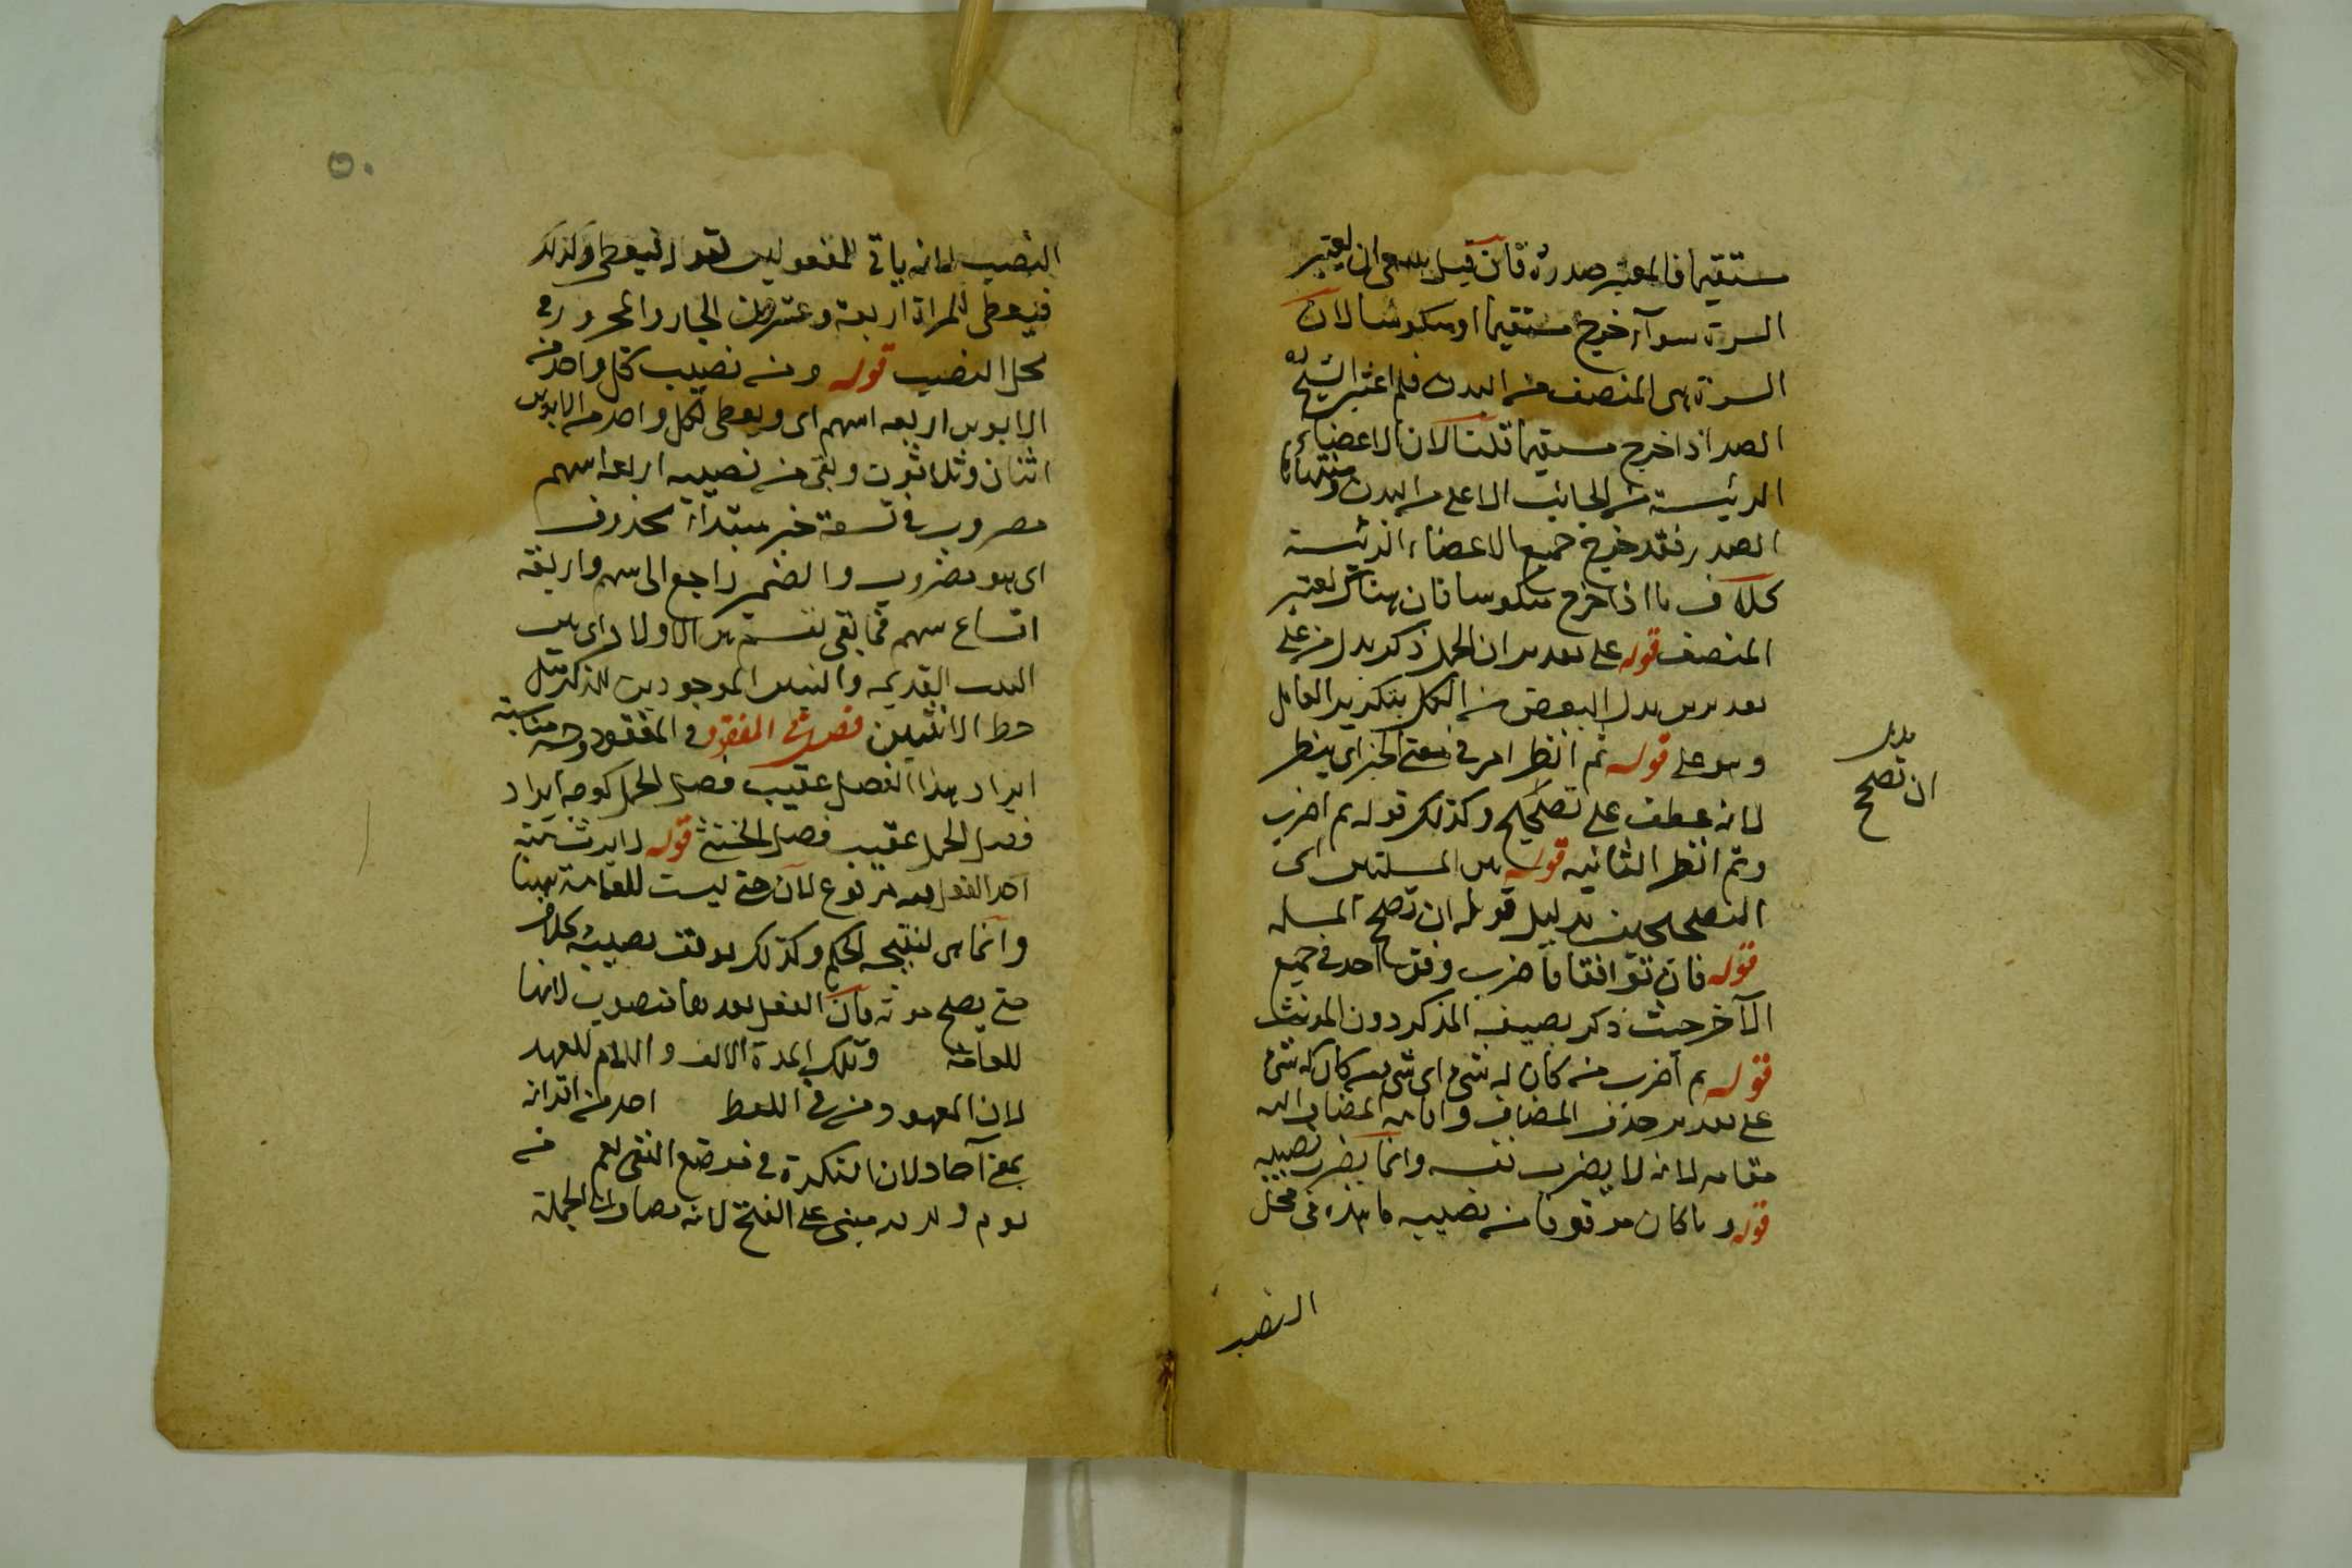 مستقيما فالمعتبر صدره فان قيل ينبغى ان يعتبر
السرة سواء خرج مستقيما او منكوسا لان
السرة هى المنصف من البدن فلم اعتبر الشيخ
الصدر اذا خرج مستقيما قلنا لان الاعضاء
الرئيسة من الجانب الاعلى من البدن ومنتهاها
الصدر فقد خرج جميع الاعضاء الرئيسة
بخلاف ما اذا خرج منكوسا فان هناك يعتبر
المنصف قوله على تقديرين ان الحمل ذكر بدل من على
تقديرين بدل البعض من الكل بتكرير العامل
وهو على قوله ثم انظر امر فى معنى الخبر اى ينظر
لانه عطف على تصحيح وكذلك قوله ثم اضرب
وثم انظر الثانيه قوله بين المسئلتين اى
التصحيحين بدليل قوله ان تصحح المسئله
قوله فان توافقا فاضرب وفق احدهما فى جميع
الآخر حيث ذكر بصيغة المذكر دون المؤنث
قوله ثم اضرب من كان له شئ اى شئ من كان له شئ
على تقدير حذف المضاف واقامة المضاف اليه
مقامه لانه لا يضرب نفسه وانما يضرب نصيبه
قوله وما كان موقوفا من نصيبه ما هذه فى محل
النصب
بدليل
ان تصحح
٥٠
النصيب لانه ثانى المفعولين لقوله فيعطى وكذلك
فيعطى للمراة اربعة وعشرون الجار والمجرور فى
محل النصب قوله ومن نصيب كل واحد من
الابوين اربعه اسهم اى ويعطى لكل واحد من الابوين
اثنان وثلاثون وبقى من نصيبه اربعة اسهم
مضروب فى تسعة خبر مبتداء محذوف
اى هو مضروب والضمير راجع الى سهم واربعة
اتساع سهم فما بقى نقسم بين الاولاد اى بين
البنت القديمه والبنين الموجودين للذكر مثل
حظ الانثيين فصل فى المفقود فى المفقود وجه مناسبة
ايراد هذا الفصل عقيب فصل الحمل كوجه ايراد
فصل الحمل عقيب فصل الخنثى قوله لا يرث منه
احد الفعل بعد مرفوع لان حتى ليست للغاية ههنا
وانما هى لنتيجه الحكم وكذلك يوقف نصيبه بخلاف
حتى يصح موته فان الفعل بعدها منصوب لانها
للغاية وتلك المدة الالف واللام للعهد
لان المعهود مر فى اللفظ احد من اقرانه
بمعنى آحاد لان النكرة فى موضع النفى تعم من
يوم ولد يوم مبنى على الفتح لانه مضاف الى الجملة